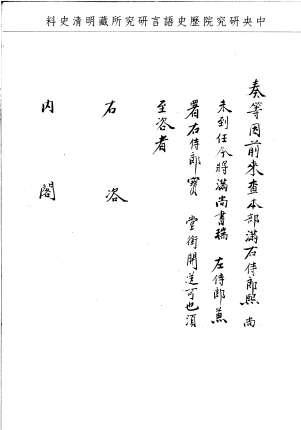 中央研究院歷史語言研究所藏明清史料
奏等因前來查本部滿右侍郎熙 尚
未到任今將滿尚書瑞 左侍郎兼
署右侍郎寶 堂銜開送可也須
至咨者
右 咨
內 閣